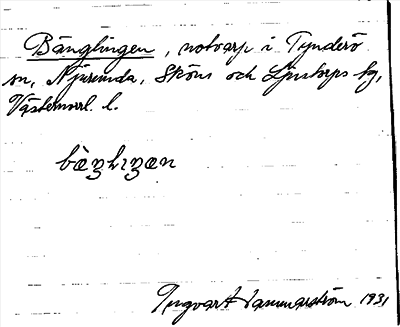 Bänglingen, notvarp i Tynderö
sn, Njurunda, Sköns och Ljustorps tg,
Västernorrl. l.
Ingvar Hammarström 1931